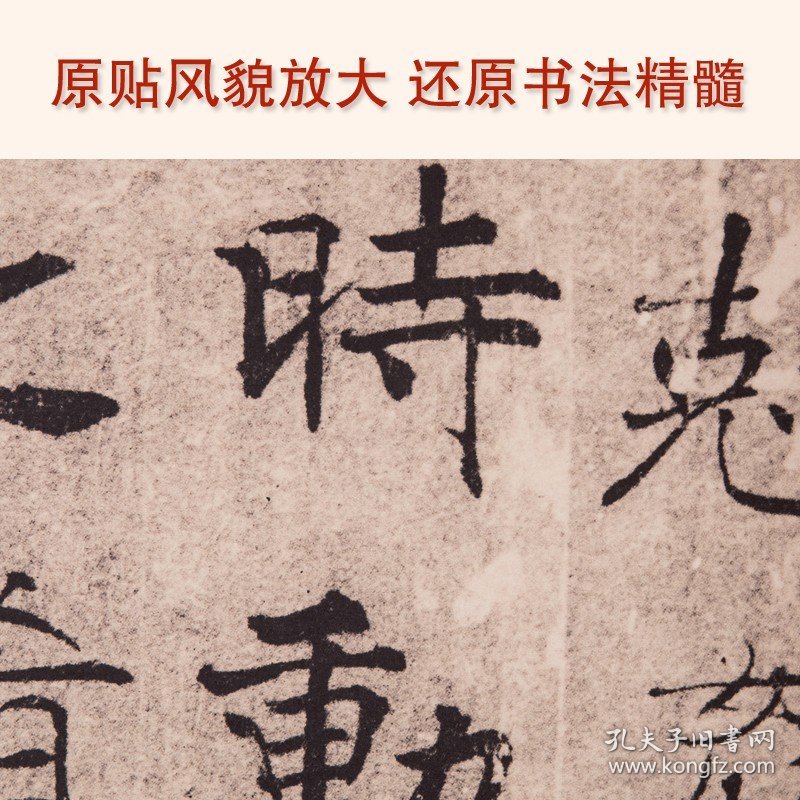 原贴风貌放大 还原书法精髓
時動
孔夫子旧書网
www.kongfz.com